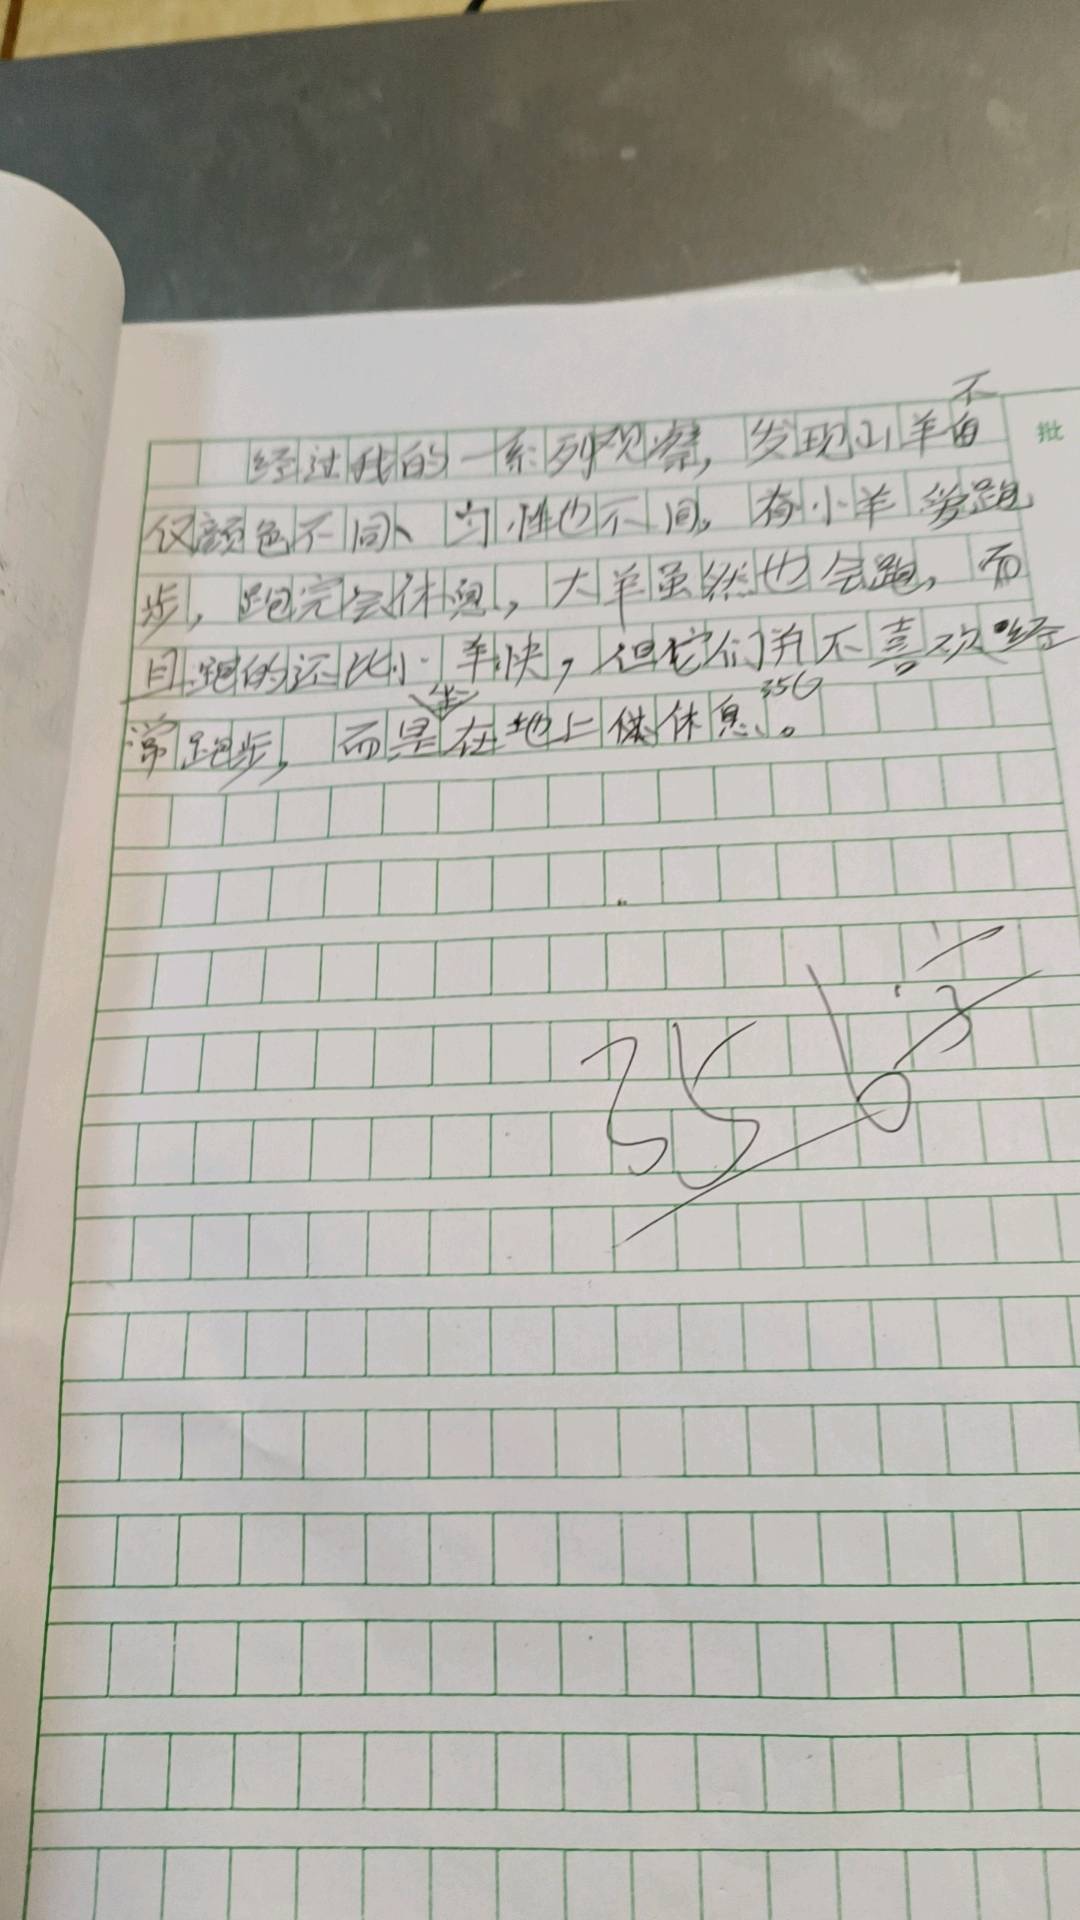 不
经过我的一系列观察，发现山羊
仅颜色不同、习性也不同。有小羊学跑
步，跑完会休息，大羊虽然也会跑，而
且跑的还比小羊快，但它们并不喜欢经
坐 356
常跑步，而是在地上休息。
批
35